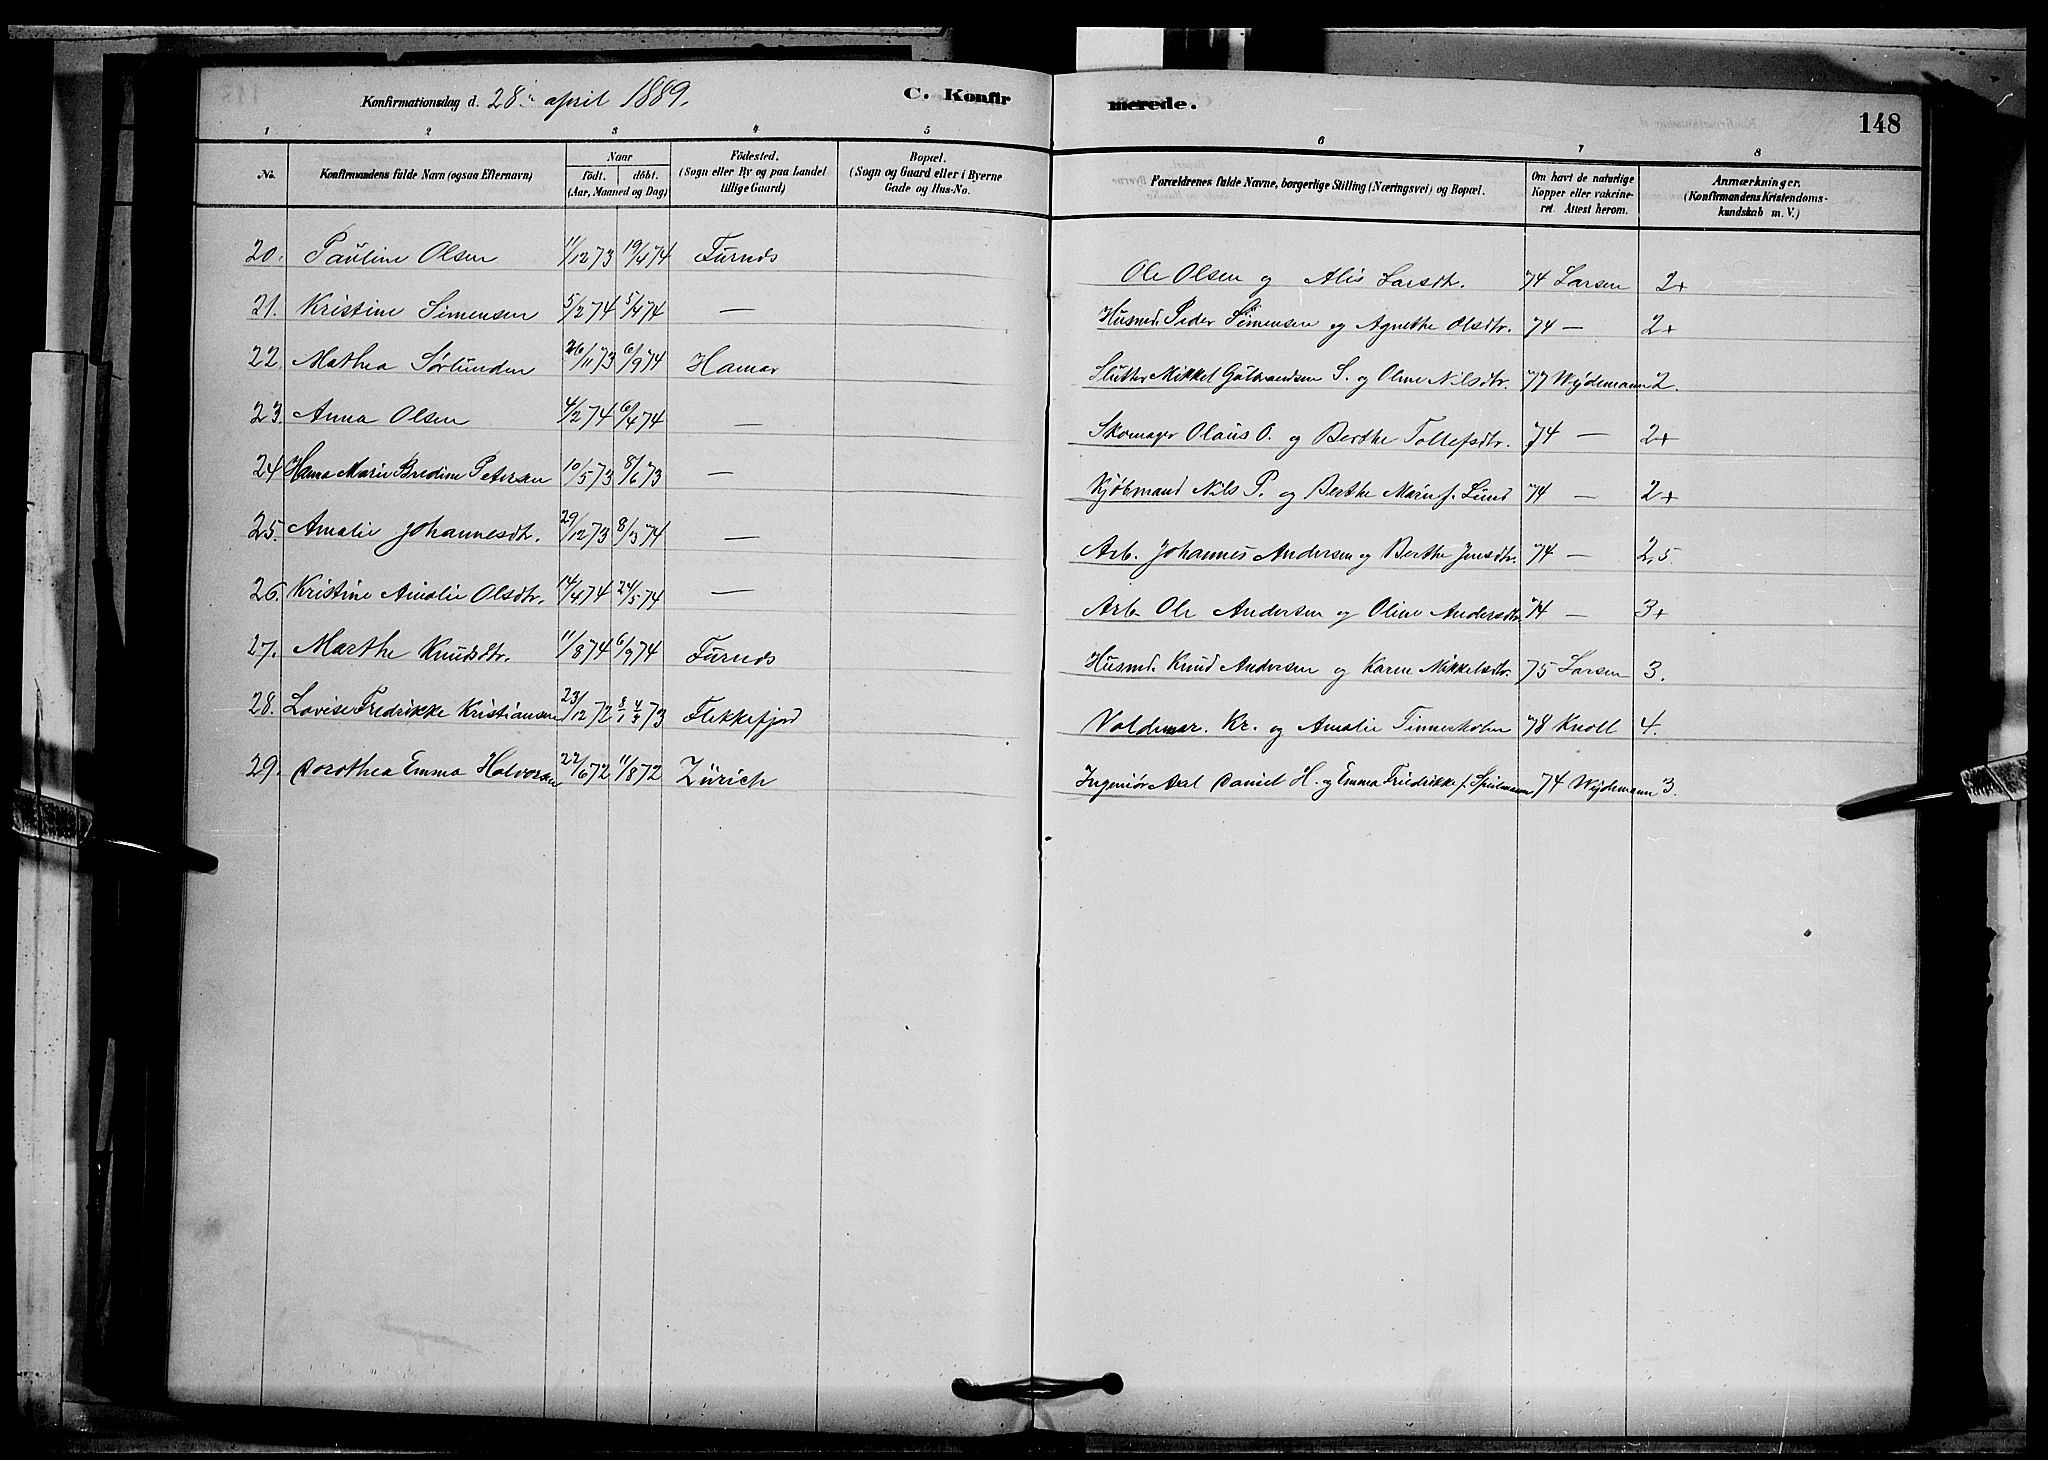 Konfirmationsdag d. 28. april 1889.
C. Konfirmerede.
148
1 2 3 4 5 6 7 8
No. Konfirmandens fulde Navn (ogsaa Efternavn) Naar födt. döbt. (Aar, Maaned og Dag) Födested. (Sogn eller By og paa Landet tillige Gaard) Bopæl. (Sogn og Gaard eller i Byerne Gade og Hus-No. Forældrenes fulde Navne, borgerlige Stilling (Næringsvei) og Bopæl. Om havt de naturlige Kopper eller vakcineret. Attest herom. Anmærkninger. (Konfirmandens Kristendomskundskab m. V.)
20. Pauline Olsen 11/12 73 19/4 74 Furnds Ole Olsen og Alis Larsdtr. 74 Larsen 2+
21. Kristine Simensen 5/2 74 5/4 74 — Husmd. Peder Simensen og Agnethe Olsdtr. 74 — 2+
22. Mathea Sørlunden 26/11 73 6/9 74 Hamar Slutter Mikkel Gulbrandsen S. og Oline Nilsdtr. 77 Wydemann 2.
23. Anna Olsen 4/2 74 6/4 74 — Skomager Olaus O. og Berthe Tollefsdtr. 74 — 2+
24 Hanna Marie Bredine Petersen 10/5 73 8/6 73 — Kjøbmand Nils P. og Berthe Marie f. Lund 74 — 2+
25. Amalie Johannesdtr. 29/12 73 8/3 74 — Arb. Johannes Andersen og Berthe Jensdtr. 74 — 2,5
26. Kristine Amalie Olsdtr. 14/4 74 24/5 74 — Arb. Ole Andersen og Oline Andersdtr. 74 — 3+
27. Marthe Knudsdtr. 11/8 74 6/9 74 Furnds Husmd. Knud Andersen og Karen Mikkelsdtr. 75 Larsen 3.
28. Lovise Fredrikke Kristiansen 23/12 72 8/1 73 Flekkefjord Valdemar Kr. og Amalie Tinnesholm 78 Knoll 4.
29. Dorothea Emma Halvorsen 22/6 72 11/8 72 Zürich Ingeniør Axel Daniel H. og Emma Fredrikke f. Spielmann 74 Wydemann 3.